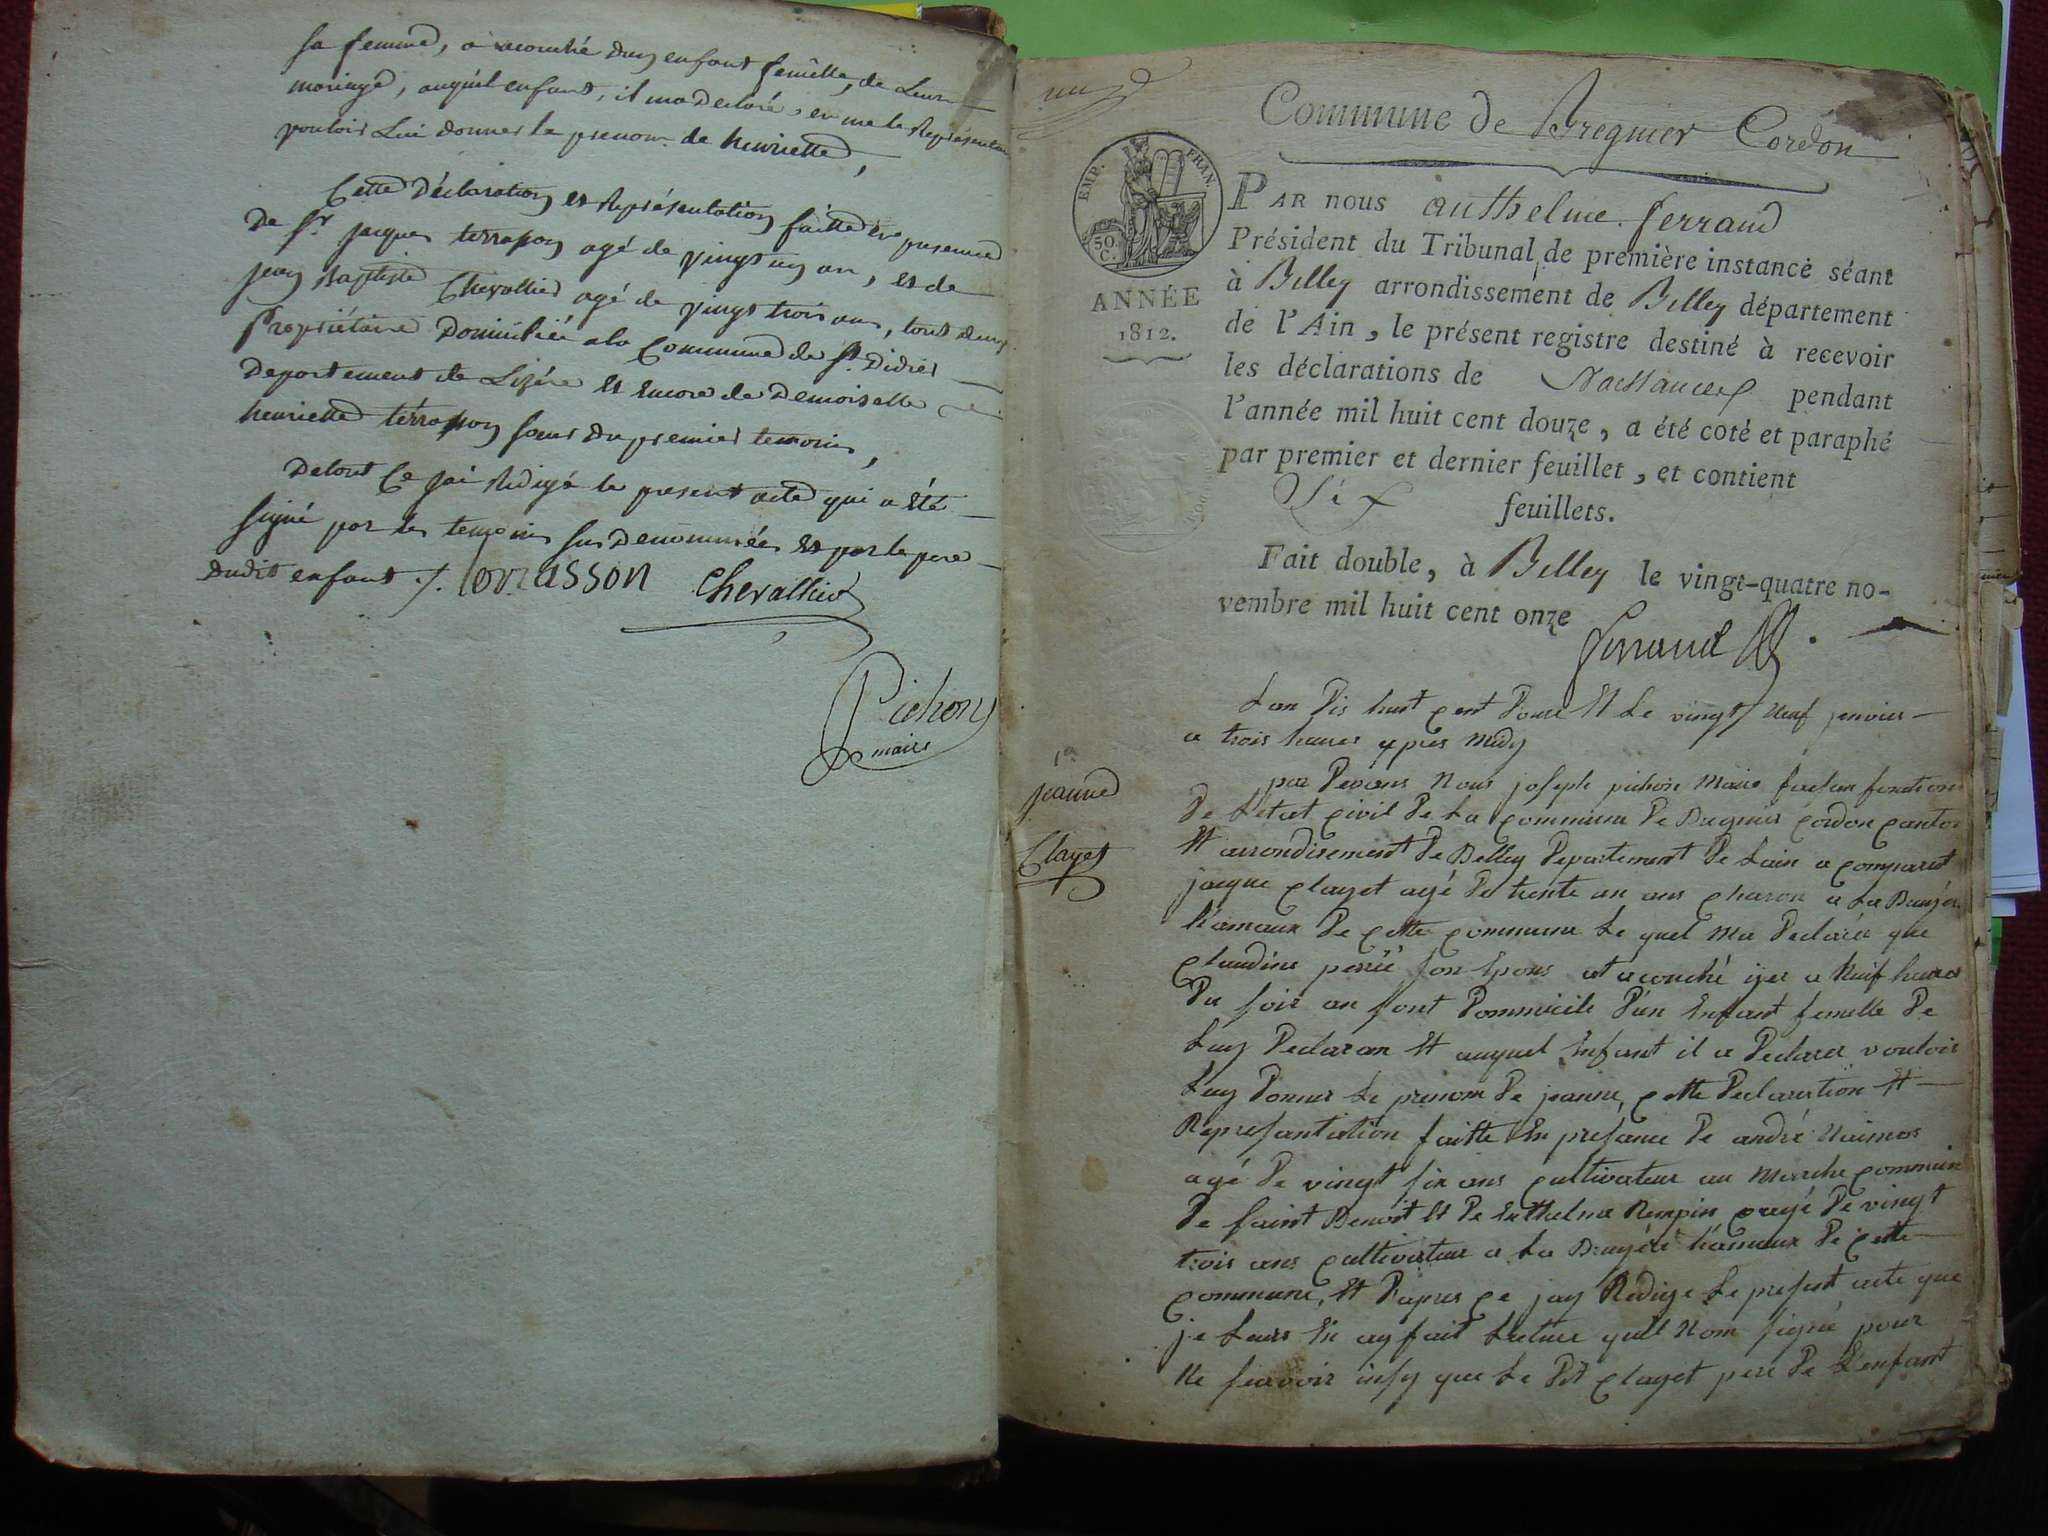 sa femme, a acouché d'un enfant femelle, de Leur
mariage, auquel enfant, il m'a déclaré, en me le Représentant
vouloir Lui donner le prenom de henriette,
Cette Déclaration et Représentation faitte en presence
De Sr. jacques terrasson agé de vingt un an, et de
jean Baptiste Chevallier agé de vingt trois ans, tout deux
Propriétaire Domicilié a la Commune de St. Didier
Departement de Lizére et Encore de Demoiselle
henriette terrasson soeur du premier temoin,
De tout Ce jai Rédigé le present acte qui a Été
signé par les temoins sus Denommées et par le pere
Dudit enfant ./. Terrasson Chevallier
Pichon
maire
un
Commune de Bregnier Cordon
EMP. FRAN.
50
C.
ANNÉE
1812.
PAR NOUS anthelme ferrand
Président du Tribunal de première instance séant
à Belley arrondissement de Belley département
de l'Ain, le présent registre destiné à recevoir
les déclarations de Naissances pendant
l'année mil huit cent douze, a été coté et paraphé
par premier et dernier feuillet, et contient
Six feuillets.
Fait double, à Belley le vingt-quatre no-
vembre mil huit cent onze
Ferrand
Lan Dis huit cent Douze Et Le vingt Neuf janvier
a trois heures apres Midy
1er
jeanne
Clayet
par Devans Nous joseph pichon Maire faisan fonction
De Letat civil De La commune De Bregnier Cordon Canton
Et arrondisement De Belley Departement De Lain a comparut
jacque Clayet agé De trente un ans charon a La Bruyér
hamaux De cette commune Le quel Ma Declarée que
claudine perrié son Epous at acouché iyer a Neuf heures
Du soir an sont Dommicile D'un Enfant femelle De
Luy Declaran Et auquel Enfant il a Declarer vouloir
Luy Donner Le prenom De jeanne, cette Declaration Et
Represantation faitte En presance De andré
agé De vingt six ans cultivateur au Marche commune
De saint Benoit Et De Enthelme agé De vingt
trois ans cultivateur a La Bruyére hamaux De cette
commune, Et Dapres ce jay Redige Le presest acte que
je Leurs En ay fait Lecture quil Nom signé pour
Ne scavoir insy que Le Dit Clayet pere De L'enfant